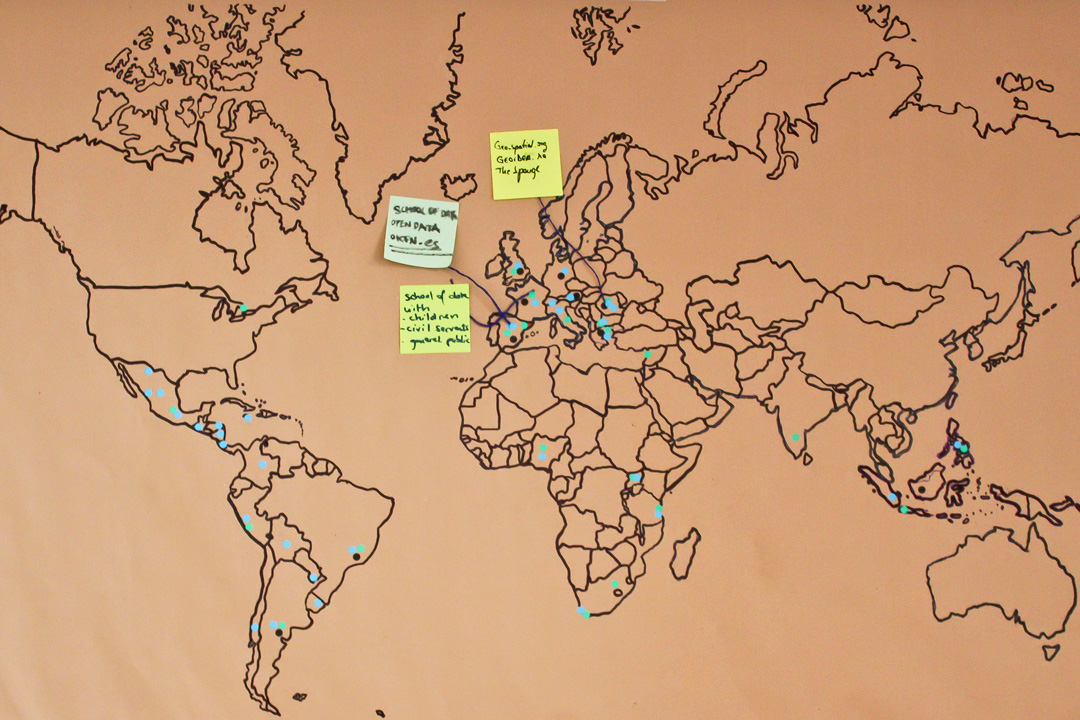 Geo-spatial.org
The Sponge
SCHOOL OF DATA
OPEN DATA
OKFN.es
school of data
with
- children
- civil servants
- general public